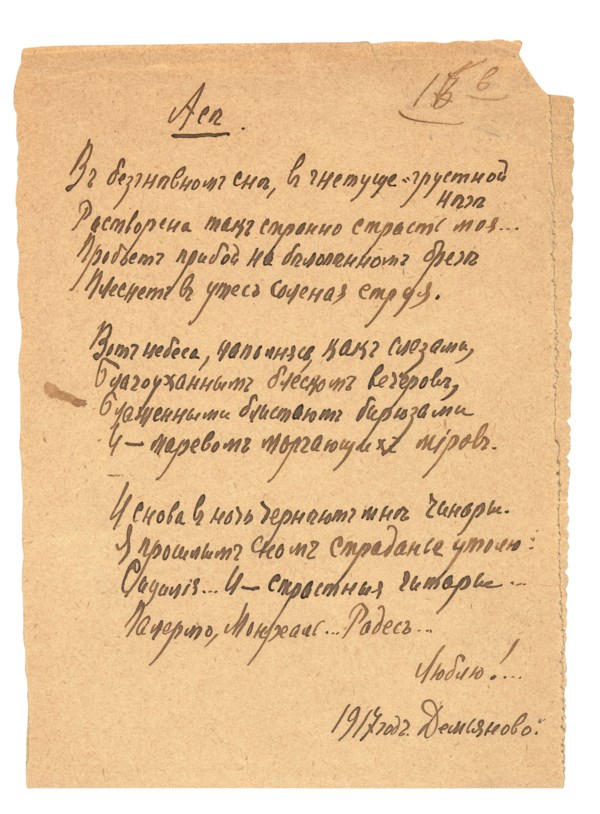 1 б в
Асѣ.
Въ безгнѣвномъ снѣ, в гнетуще-грустной
нѣгѣ
Растворена такъ странно страсть моя...
Пробьетъ прибой на бѣлопѣнномъ брегѣ
Плеснетъ в утесъ соленая струя.
Вотъ небеса, наполнясь, какъ слезами,
Благоуханнымъ блескомъ вечеровъ,
Блаженными блистаютъ бирюзами
И – маревомъ моргающихъ міровъ.
И снова в ночь чернѣютъ мнѣ чинары.
Я прошлымъ сномъ страданье утолю:
Сицилія... И – страстныя гитары...
Палермо, Монреаль... Радесъ...
Люблю!...
1917 годъ. Демьяново.